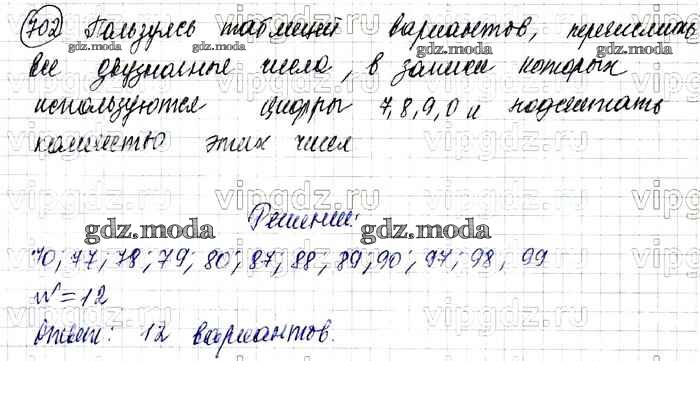 702 Пользуясь таблицей вариантов, перечислить
все двузначные числа, в записи которых
используются цифры 7,8,9,0 и подсчитать
количество этих чисел
Решение:
70; 77; 78; 79; 80; 87; 88; 89; 90; 97; 98; 99
N=12
Ответ: 12 вариантов.
gdz.moda
gdz.moda
gdz.moda
gdz.moda
gdz.moda
gdz.moda
vipgdz.ru
vipgdz.ru
vipgdz.ru
vipgdz.ru